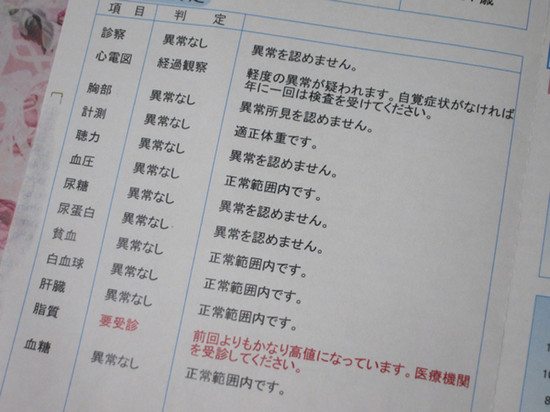 項目 判定
診察 異常なし 異常を認めません。
心電図 経過観察 軽度の異常が疑われます。自覚症状がなければ
年に一回は検査を受けてください。
胸部 異常なし 異常所見を認めません。
計測 異常なし 適正体重です。
聴力 異常なし 異常を認めません。
血圧 異常なし 正常範囲内です。
尿糖 異常なし 異常を認めません。
尿蛋白 異常なし 異常を認めません。
貧血 異常なし 正常範囲内です。
白血球 異常なし 正常範囲内です。
肝臓 異常なし 正常範囲内です。
脂質 要受診 前回よりもかなり高値になっています。医療機関
を受診してください。
血糖 異常なし 正常範囲内です。